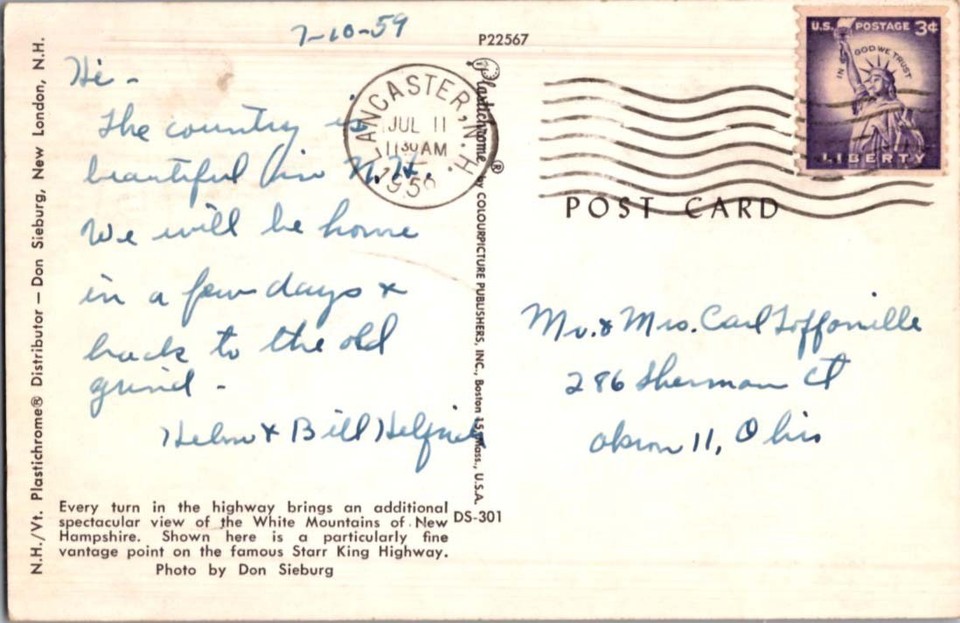 7-10-59
Hi -
The country is
beautiful in N.H.
We will be home
in a few days &
back to the old
grind -
Helen & Bill
P22567
LANCASTER, N.H.
JUL 11
11 30 AM
U.S. POSTAGE 3¢
IN GOD WE TRUST
LIBERTY
POST CARD
Mr. & Mrs. Carl
286 Sherman Ct
Akron 11, Ohio
N.H./Vt. Plastichrome® Distributor — Don Sieburg, New London, N.H.
Plastichrome® by COLOURPICTURE PUBLISHERS, INC., Boston 15, Mass., U.S.A.
Every turn in the highway brings an additional
spectacular view of the White Mountains of New
Hampshire. Shown here is a particularly fine
vantage point on the famous Starr King Highway.
Photo by Don Sieburg
DS-301